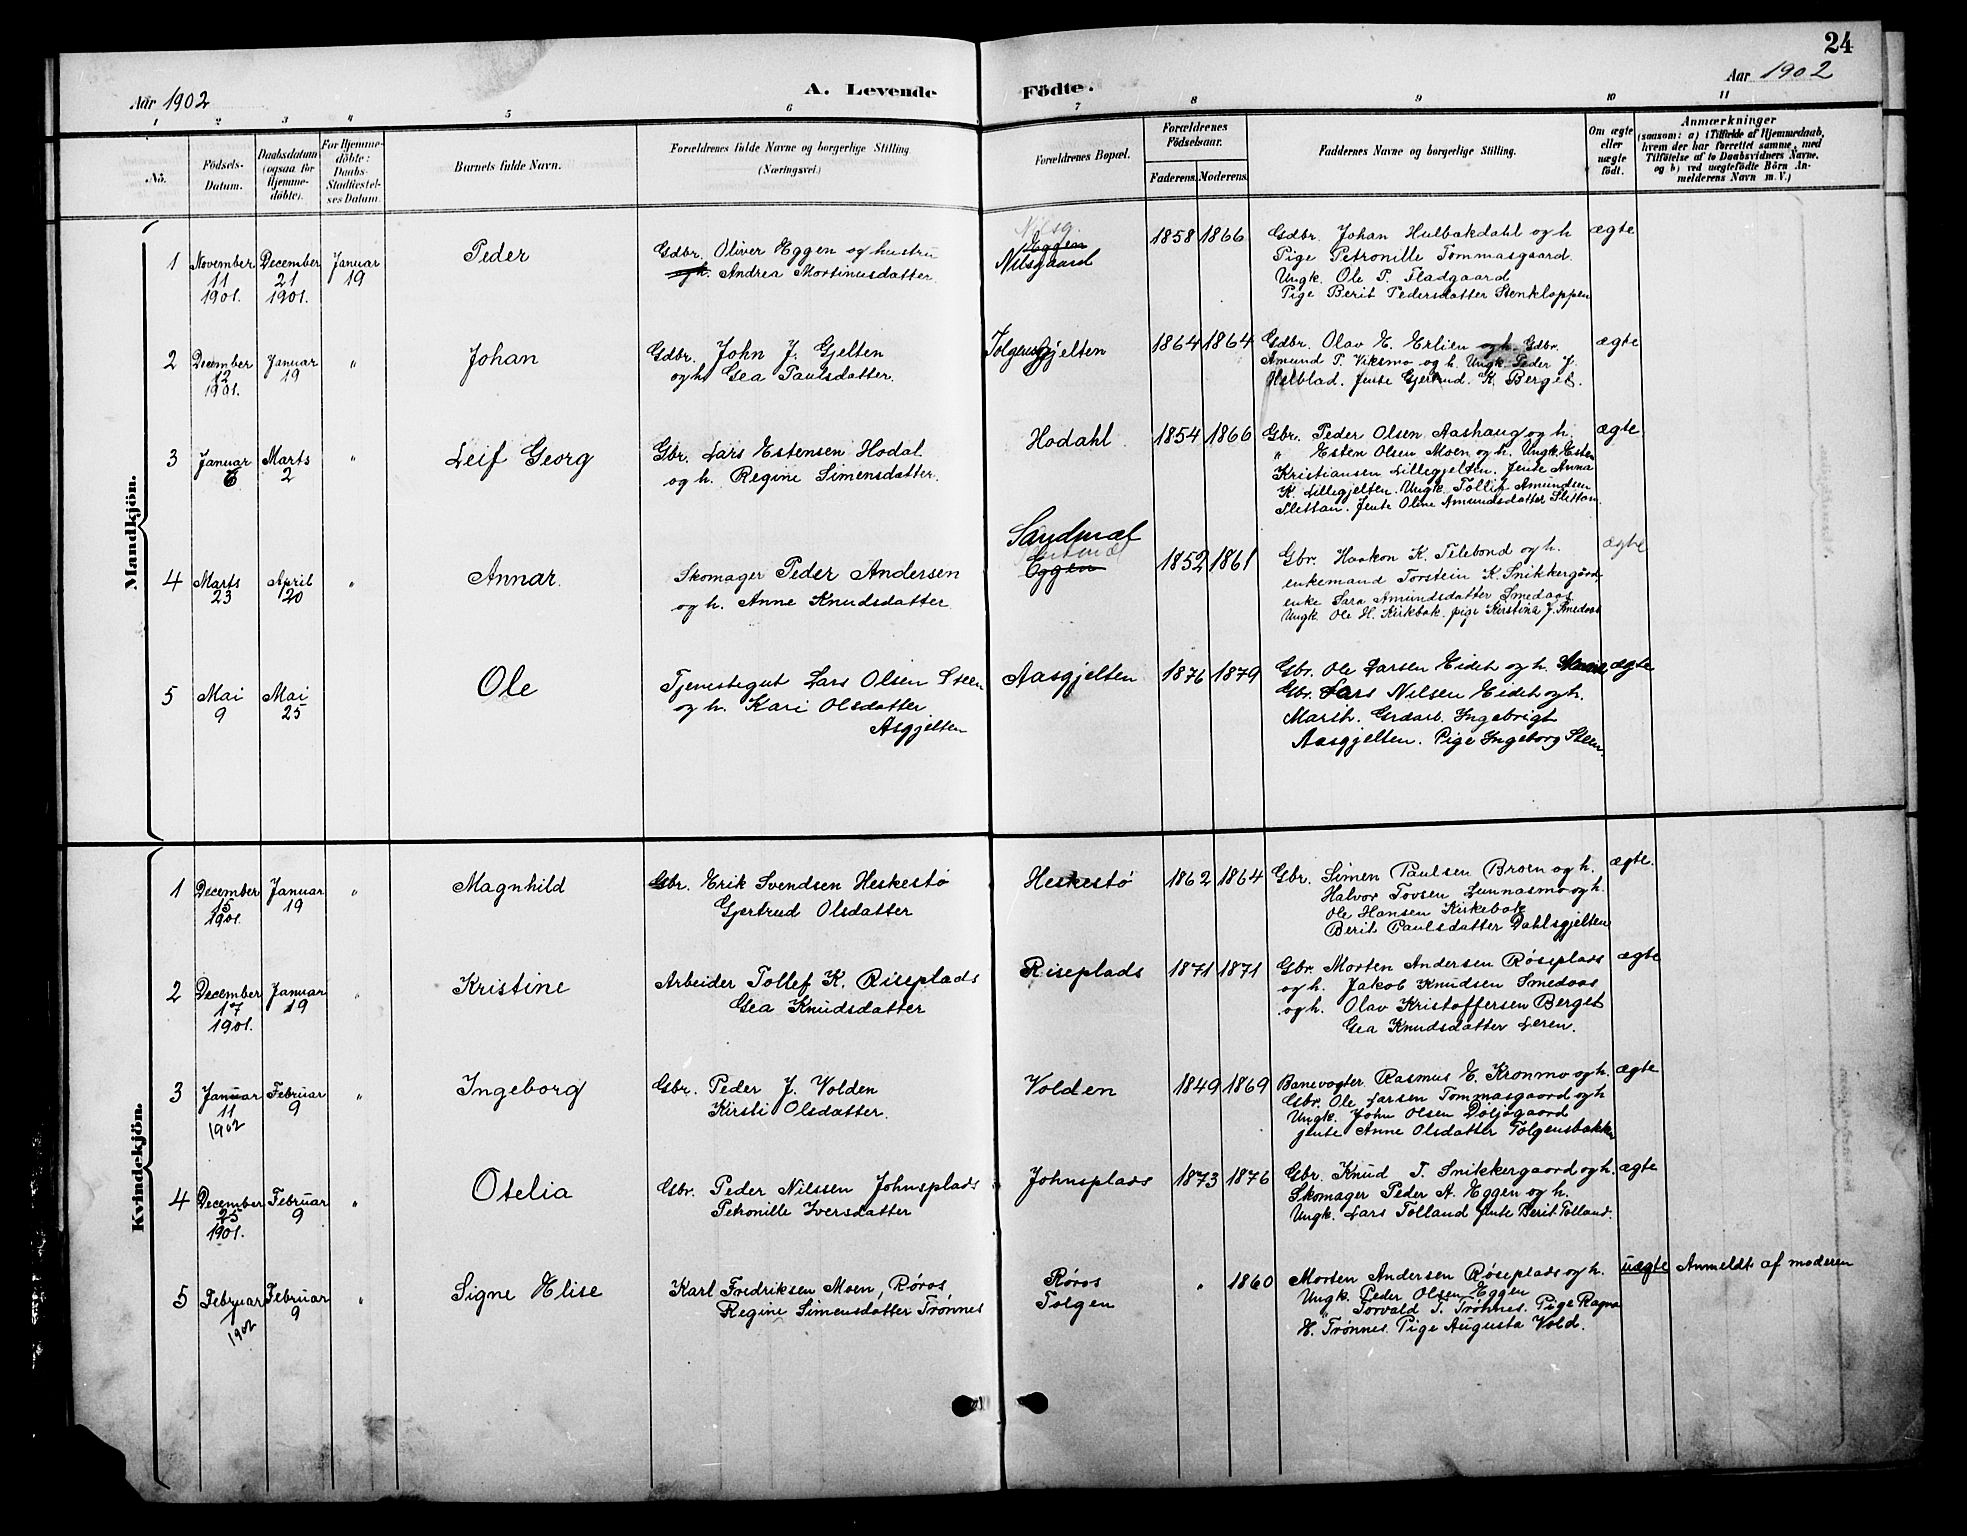 24
Aar 1902
A. Levende Födte.
Aar 1902
1 2 3 4 5 6 7 8 9 10 11
No.
Födsels-Datum.
Daabsdatum (ogsaa for Hjemmedöbte).
For Hjemmedöbte: Daabs-Stadfæstelses Datum.
Barnets fulde Navn.
Forældrenes fulde Navne og borgerlige Stilling
(Næringsvei.)
Forældrenes Bopæl.
Forældrenes Födselsaar.
Faderens. Moderens.
Faddernes Navne og borgerlige Stilling.
Om ægte eller uægte födt.
Anmærkninger
(saasom: a) i Tilfælde af Hjemmedaab, hvem der har forrettet samme, med Tilföielse af to Daabsvidners Navne, og b) ved uægtefödte Börn Anmelderens Navn m. V.)
Mandkjön.
1 November 11 1901. December 21 1901. Januar 19
Peder
Gdbr. Oliver Eggen og hustru
Andrea Mortinusdatter
Nilsg.
Eggen
Nilsgaard
1858 1866
Gdbr. Johan Hulbakdahl og h
Pige Petronille Tommasgaard.
Ungk. Ole P. Fladgaard
Pige Berit Pedersdatter Stenkloppen
ægte
2 December 12 1901. Januar 19 "
Johan
Gdbr. John J. Gjelten
og h. Gea Paulsdatter.
Tolgensgjelten
1864 1864
Gdbr. Olav E. Erlien og h. Gdbr.
Amund T. Viksmo og h. Ungk. Peder J.
Helblad. Jente Gjertrud. K. Berget.
ægte
3 Januar 6 Marts 2 "
Leif Georg
Gbr. Lars Estensen Hodal
og h. Regine Simensdatter.
Hodahl
1854 1866
Gbr. Peder Olsen Aashaug og h.
" Esten Olsen Moen og h. Ungk. Esten
Kristiansen Lillegjelten. Jente Anna
K. Lillegjelten. Ungk. Tollif Amundsen
Slettan. Jente Oline Amundsdatter Slettan.
ægte
4 Marts 23 April 20 "
Annar
Skomager Peder Andersen
og h. Anne Knudsdatter
Sandmæl
Eggen
1852 1861
Gbr. Haakon K. Telebond og h.
enkemand Torstein K. Snikkergård,
enke Sara Amundsdatter Smedaas
Ungk. Ole H. Kirkbak. pige Kirstina J. Smedaas
ægte
5 Mai 9 Mai 25
Ole
Tjenestegut Lars Olsen Steen
og h. Kari Olsdatter
Asgjelten
Aasgjelten
1876 1879
Gbr. Ole Larsen Eidet og h.
Gbr. Lars Nilsen Eidet og h.
Marth. Grdarb. Ingebrigt
Aasgjelten. Pige Ingeborg Steen.
ægte
Kvindekjön.
1 December 15 1901. Januar 19 "
Magnhild
Gbr. Erik Svendsen Heskestø
Gjertrud Olsdatter
Heskestø
1862 1864
Gbr. Simen Paulsen Broen og h.
Halvor Tovsen Lunnasmo og h.
Ole Hansen Kirkebak
Berit Paulsdatter Dahlsgjelten
ægte.
2 December 17 1901. Januar 19 "
Kristine
Arbeider Tollef K. Riseplads
Gea Knudsdatter
Riseplads
1871 1871
Gbr. Morten Andersen Røseplads
og h. Jakob Knudsen Smedaas
og h. Olav Kristoffersen Berget
Gea Knudsdatter Leren.
ægte
3 Januar 11 1902 Februar 9 "
Ingeborg
Gbr. Peder J. Volden
Kirsti Olsdatter.
Volden
1849 1869
Banevogter Rasmus E. Kronmo og h.
Gbr. Ole Larsen Tommasgaard og h
Ungk. John Olsen Doljogaard
jente Anne Olsdatter Tolgensbakken
ægte
4 December 25 1901. Februar 9 "
Otelia
Gbr. Peder Nilssen Johnsplads
Petronille Iversdatter
Johnsplads
1873 1876
Gbr. Knud T. Snikkergaard og h.
Skomager Peder A. Eggen og h.
Ungk. Lars Tolland jente Berit Tolland.
ægte
5 Februar 7 1902 Februar 9 "
Signe Elise
Karl Fredriksen Moen, Røros
Regine Simensdatter Trønnes
Røros
Tolgen
" 1860
Morten Andersen Røseplads og h.
Ungk. Peder Olsen Eggen
" Torvald T. Trønnes. Pige Ragna
H. Trønnes. Pige Augusta Vold.
uægte
Anmeldt af moderen